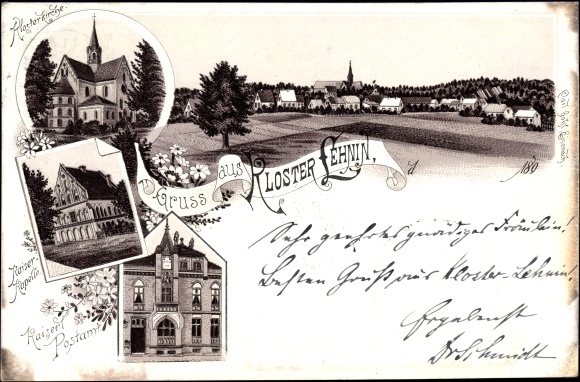 Klosterkirche.
Gruss aus KLOSTER LEHNIN,
d 189
Kaiser-
Kapelle
Kaiserl.
Postamt
Sehr geehrtes gnädiges Fräulein!
Besten Gruß aus Kloster-Lehnin!
Ergebenst
Dr Schmidt